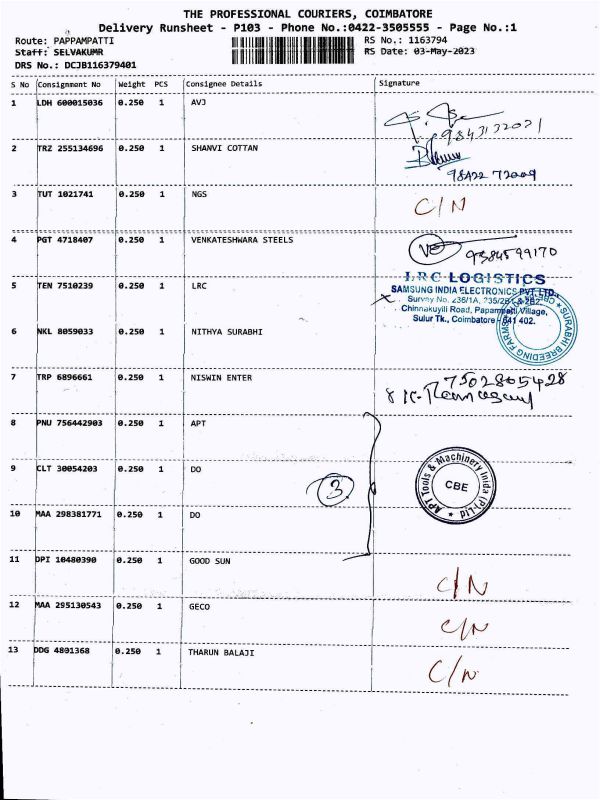 THE PROFESSIONAL COURIERS, COIMBATORE
Delivery Runsheet - P103 - Phone No.:0422-3505555 - Page No.:1
Route: PAPPAMPATTI RS No.: 1163794
Staff: SELVAKUMR RS Date: 03-May-2023
DRS No.: DCJB116379401
S No Consignment No Weight PCS Consignee Details Signature
1 LDH 600015036 0.250 1 AVJ
9843132021
2 TRZ 255134696 0.250 1 SHANVI COTTAN
98422 72009
3 TUT 1021741 0.250 1 NGS C/N
4 PGT 4718407 0.250 1 VENKATESHWARA STEELS
9384599170
5 TEN 7510239 0.250 1 LRC
LRC LOGISTICS
SAMSUNG INDIA ELECTRONICS PVT.LTD.,
Survey No. 236/1A, 235/2B1 & 2B2,
Chinnakuyili Road, Papampatti Village,
Sulur Tk., Coimbatore - 641 402.
SURABHI BREEDING FARMS
6 NKL 8059033 0.250 1 NITHYA SURABHI
7 TRP 6896661 0.250 1 NISWIN ENTER 7502865428
8 PNU 756442903 0.250 1 APT
9 CLT 30054203 0.250 1 DO 3
APT Tools & Machinery Inida (P) Ltd
CBE
10 MAA 298381771 0.250 1 DO
11 DPI 10480390 0.250 1 GOOD SUN C/N
12 MAA 295130543 0.250 1 GECO C/N
13 DDG 4801368 0.250 1 THARUN BALAJI C/N